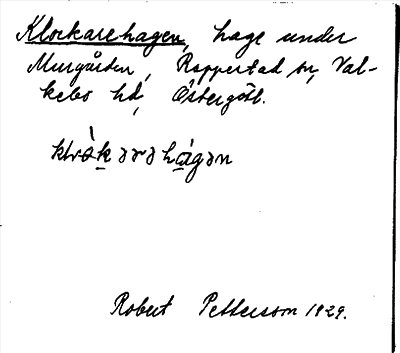 Klockarehagen, hage under
Murgården, Rappestad sn, Val-
kebo hd, Östergötl.
klɷ̀kərəhàgən
Robert Petterson 1929.